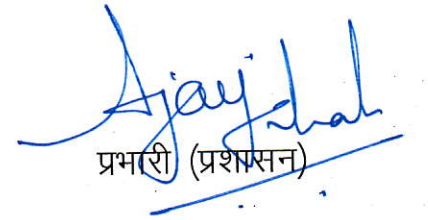 Ajay Shah
प्रभारी (प्रशासन)